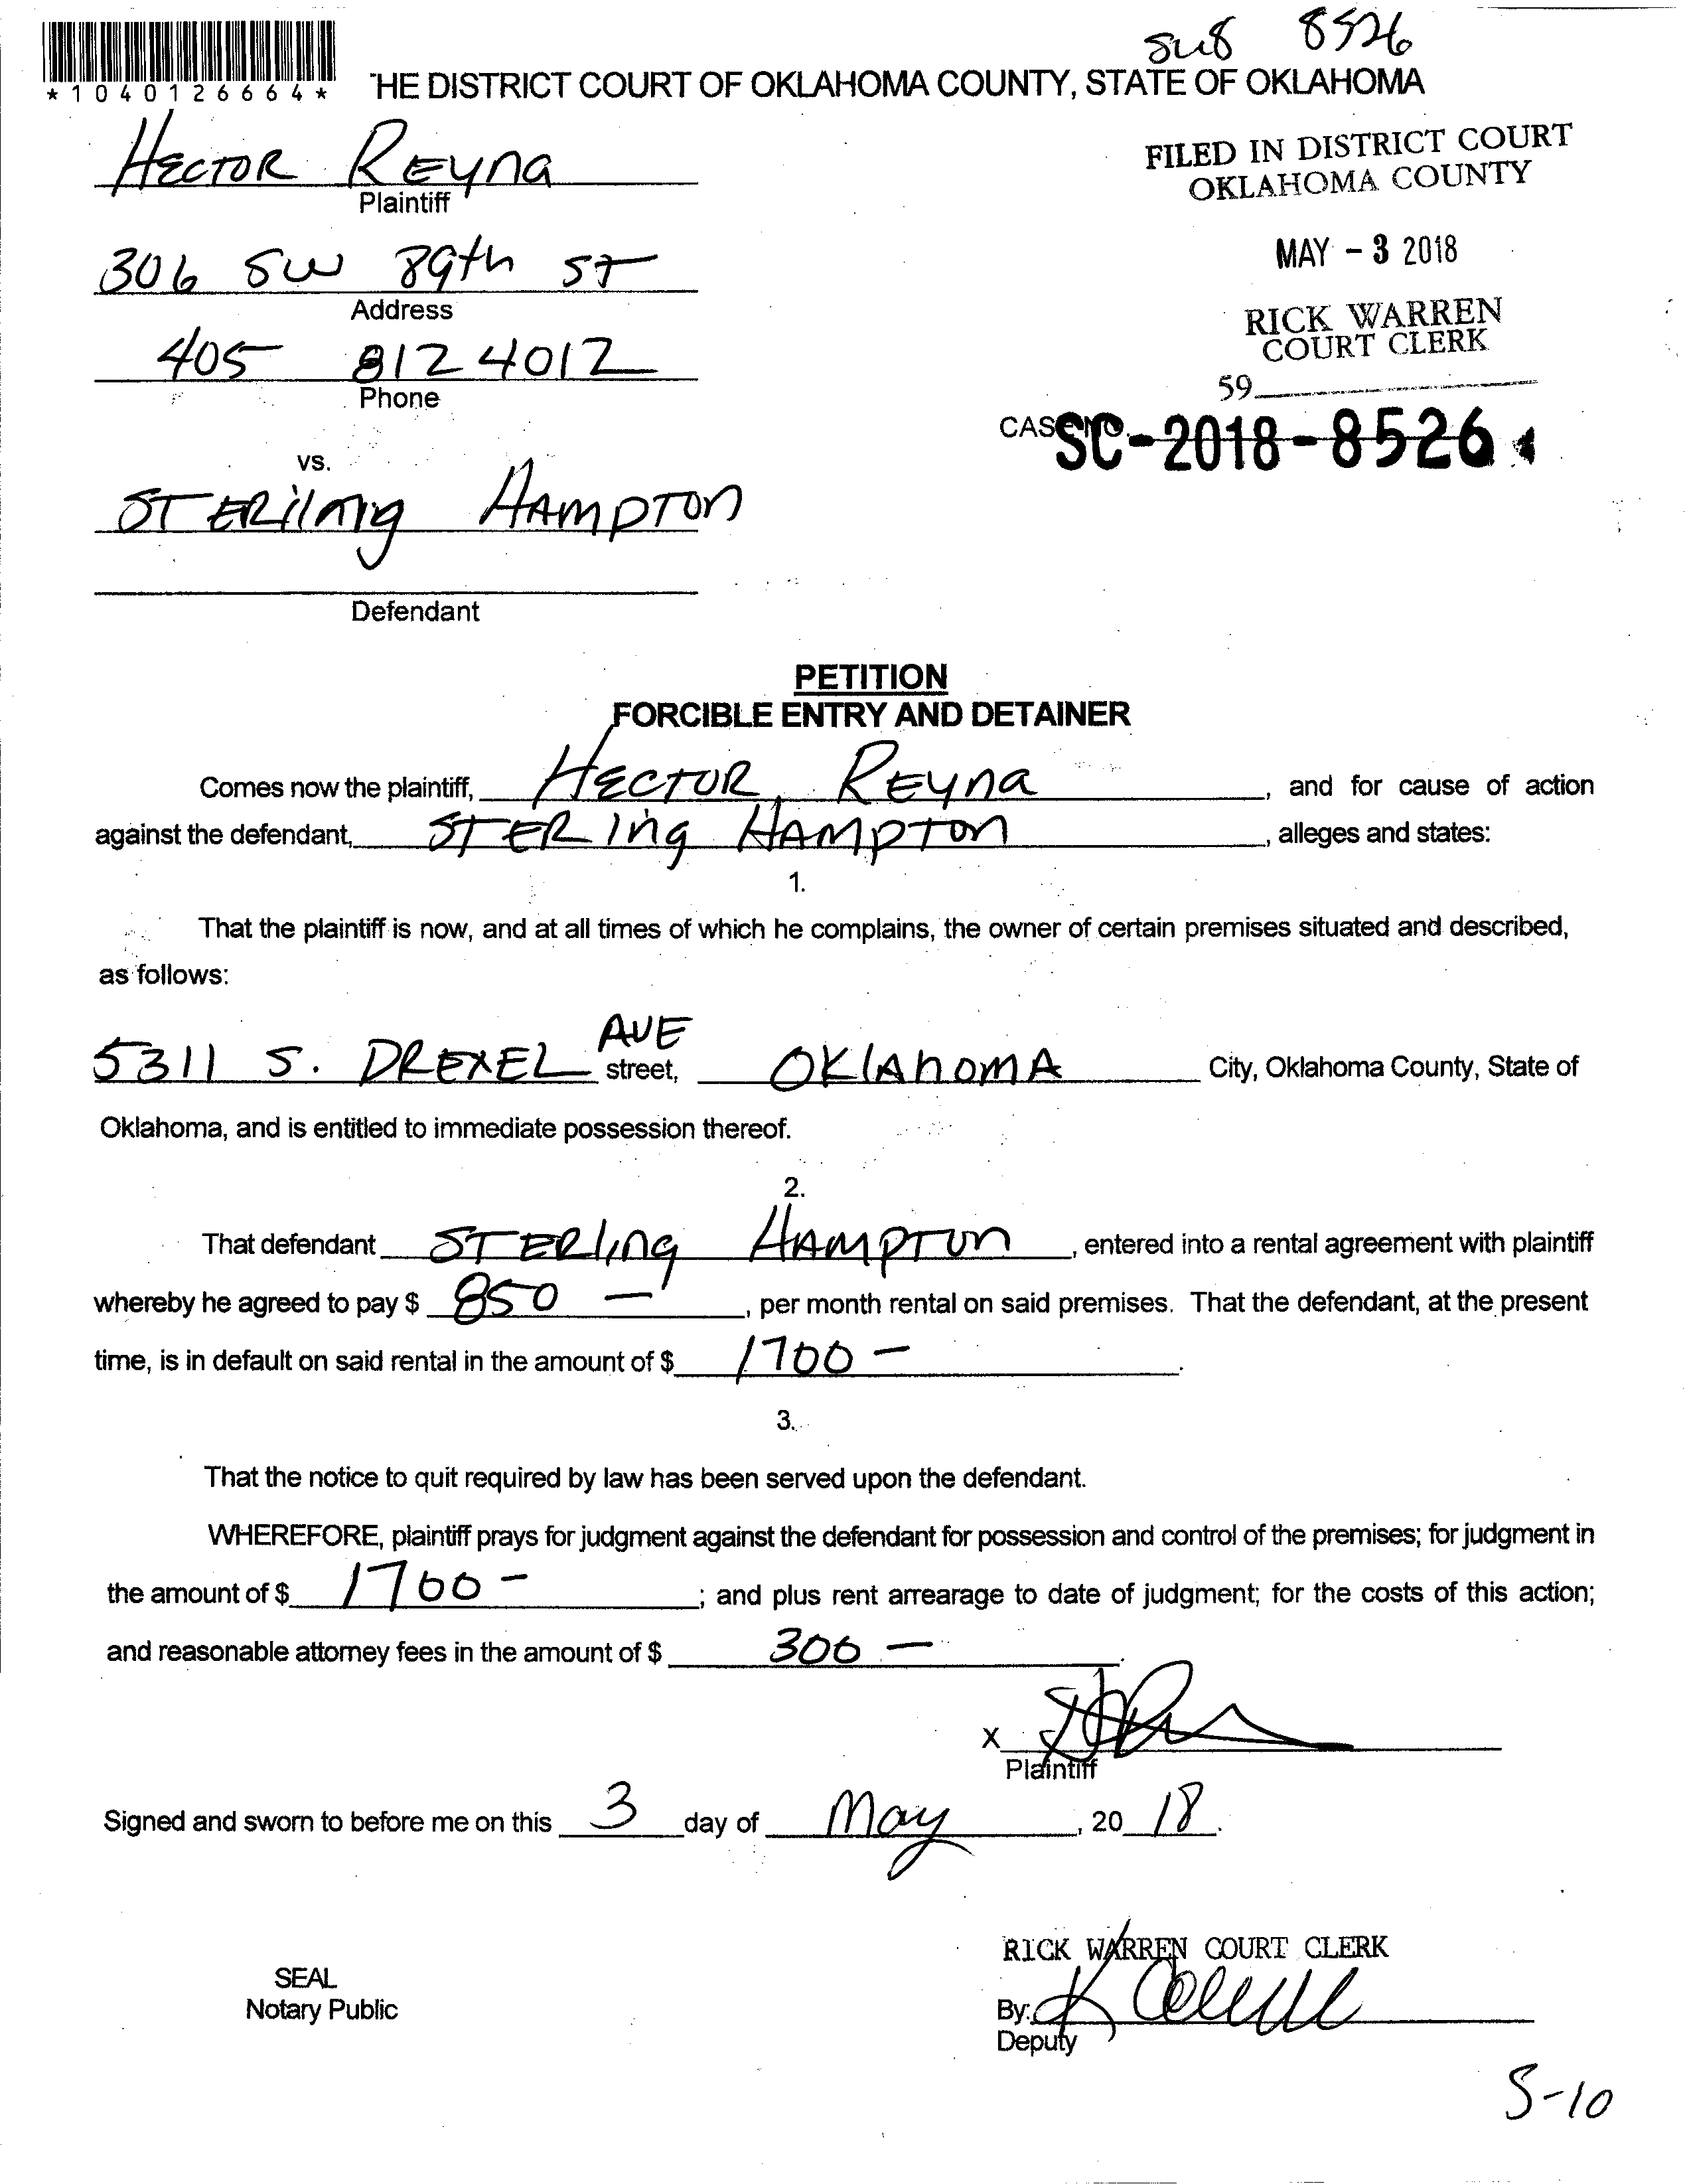 SUB 8526
*1040126664*
HE DISTRICT COURT OF OKLAHOMA COUNTY, STATE OF OKLAHOMA
HECTOR REYNA
Plaintiff
FILED IN DISTRICT COURT
OKLAHOMA COUNTY
306 SW 89th ST
Address
MAY - 3 2018
405 812 4012
Phone
RICK WARREN
COURT CLERK
59
CASE NO. SC-2018-8526
vs.
STERilnig HAMPTON
Defendant
PETITION
FORCIBLE ENTRY AND DETAINER
Comes now the plaintiff, HECTOR REYNA, and for cause of action
against the defendant, STERling HAMPTON, alleges and states:
1.
That the plaintiff is now, and at all times of which he complains, the owner of certain premises situated and described,
as follows:
5311 S. DREXEL AVE street, OKLAHOMA City, Oklahoma County, State of
Oklahoma, and is entitled to immediate possession thereof.
2.
That defendant STERling HAMPTON, entered into a rental agreement with plaintiff
whereby he agreed to pay $ 850 —, per month rental on said premises. That the defendant, at the present
time, is in default on said rental in the amount of $ 1700 —.
3.
That the notice to quit required by law has been served upon the defendant.
WHEREFORE, plaintiff prays for judgment against the defendant for possession and control of the premises; for judgment in
the amount of $ 1700 —; and plus rent arrearage to date of judgment; for the costs of this action;
and reasonable attorney fees in the amount of $ 300 —.
X
Plaintiff
Signed and sworn to before me on this 3 day of May, 20 18.
RICK WARREN COURT CLERK
SEAL
Notary Public
By:
Deputy
5-10